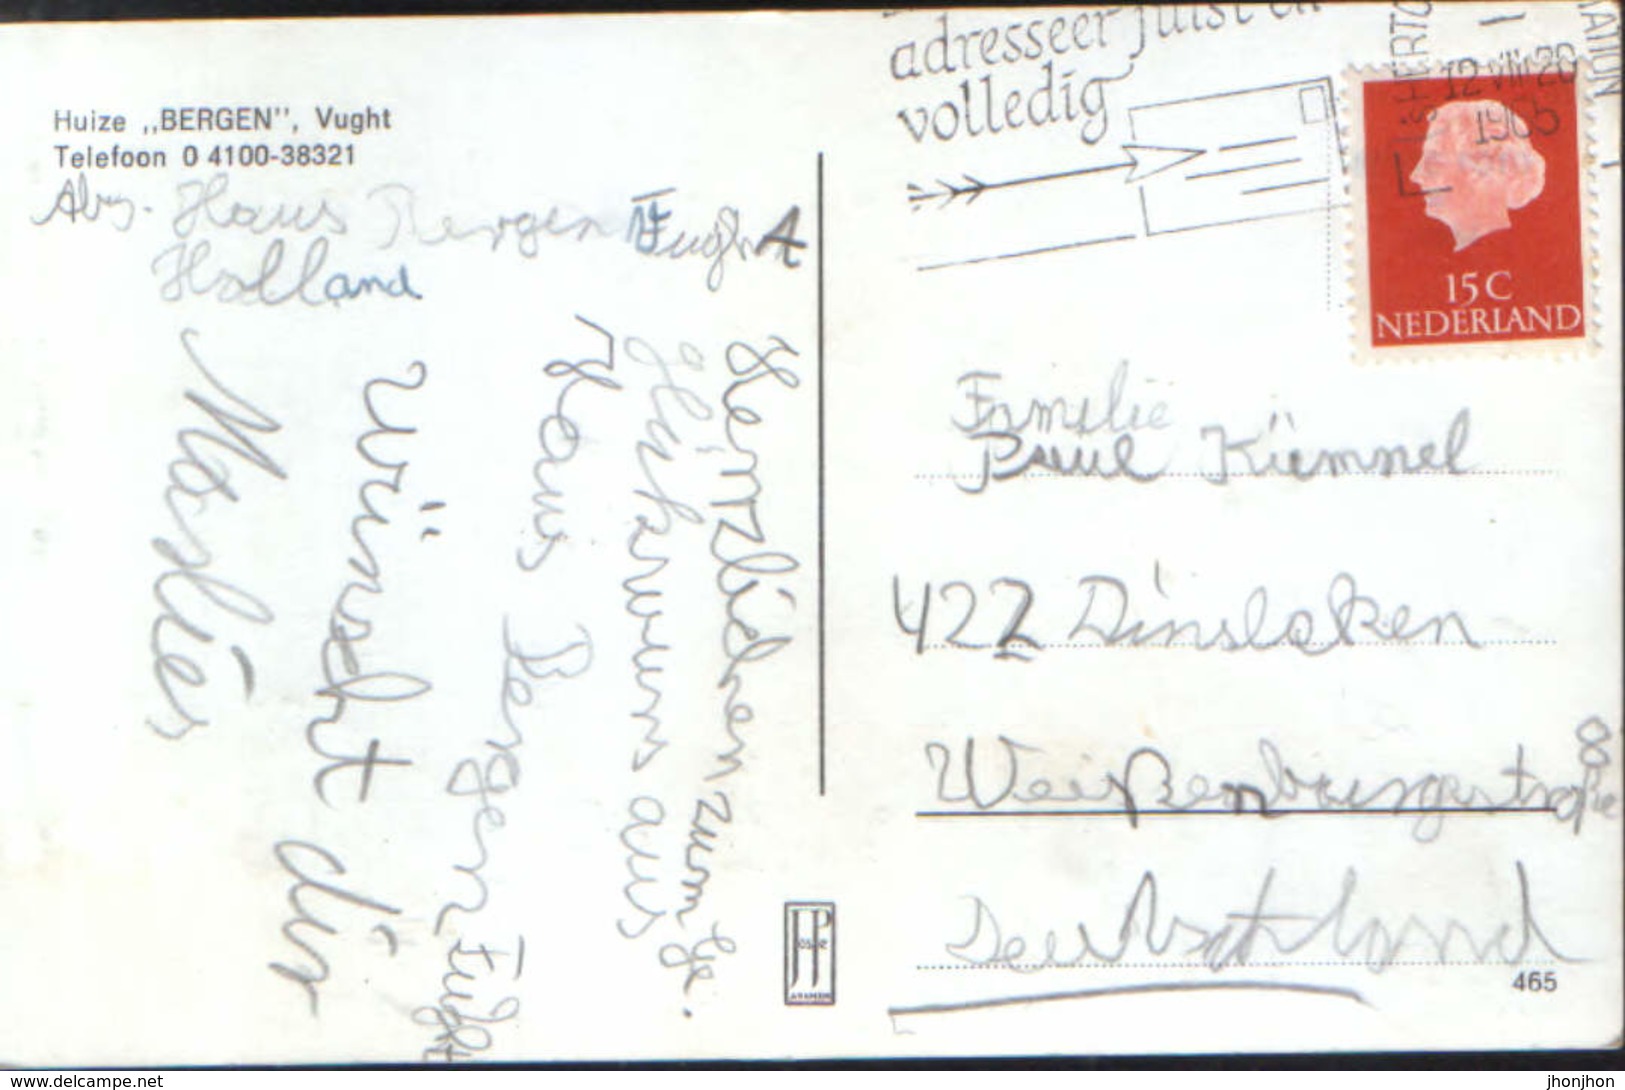 Huize „BERGEN”, Vught
Telefoon 0 4100-38321
Abs. Haus Bergen Fught
Holland
Herzlichen zum Ge.
Haus Bergen Fught
wünscht dir
adresseer juist en
volledig
12 VIII 20
1965
15 C
NEDERLAND
Familie
Paul Kümmel
422 Dinslaken
Weißenburgerstraße
8
Deutschland
465
www.delcampe.net
jhonjhon